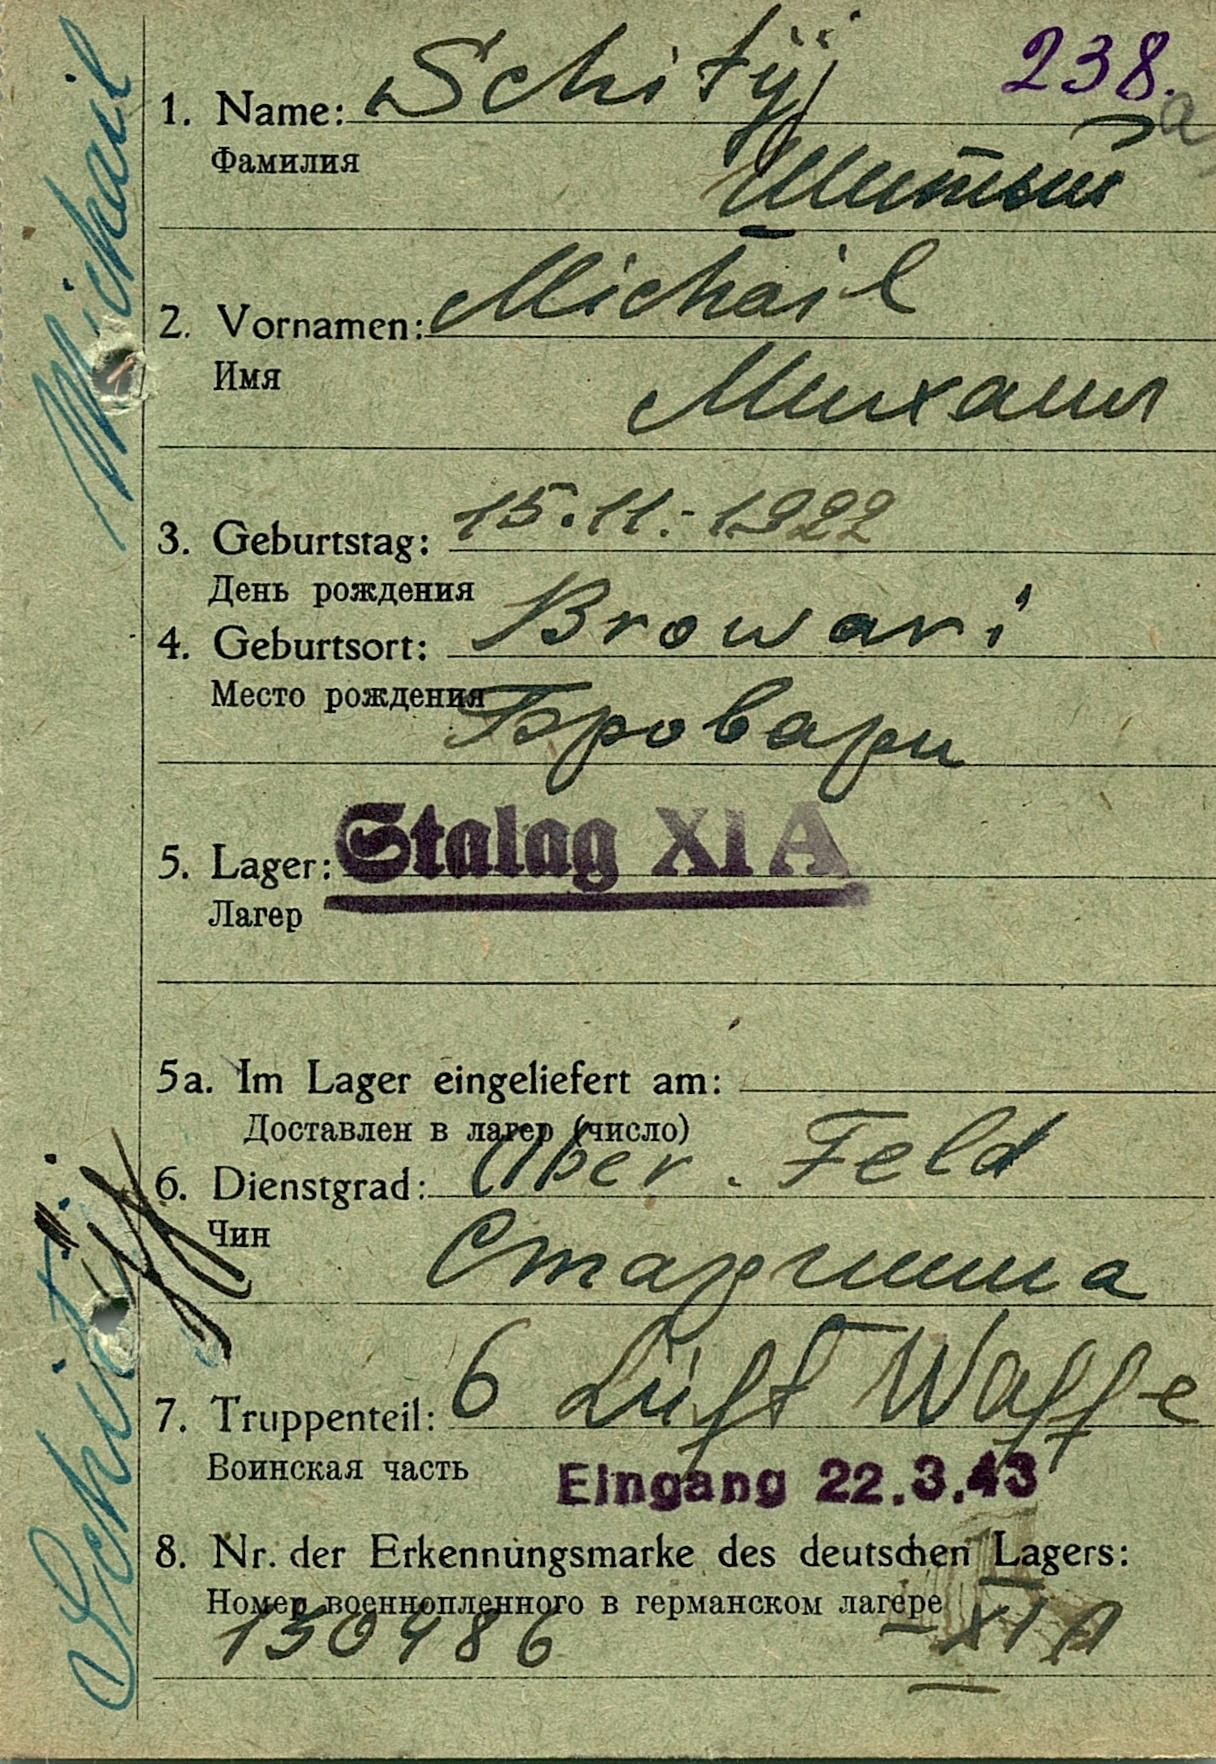 238.a
1. Name: Schitÿj
Фамилия
Шитый
2. Vornamen: Michail
Имя
Михаил
3. Geburtstag: 15.11.-1922
День рождения
4. Geburtsort: Browari
Место рождения
Бровари
5. Lager: Stalag XI A
Лагер
5a. Im Lager eingeliefert am:
Доставлен в лагер (число)
6. Dienstgrad: Ober. Feld
Чин
Старшина
7. Truppenteil: 6 Luft Waffe
Воинская часть
Eingang 22.3.43
8. Nr. der Erkennungsmarke des deutschen Lagers:
Номер военнопленного в германском лагере
130486 XI A
Schitÿj Michail